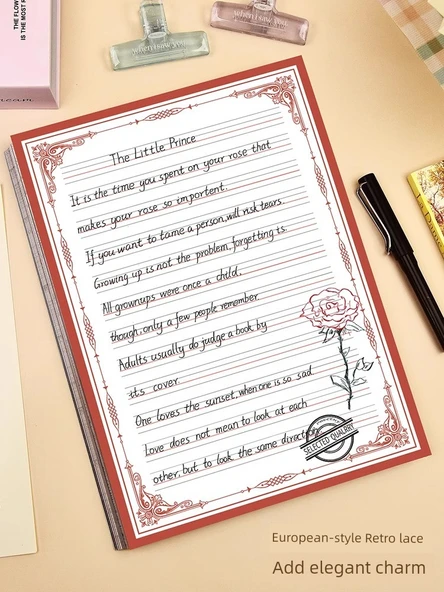 THE FLOW
IS THE MOST
ream
when i saw you
when i saw you
The Little Prince
It is the time you spent on your rose that
makes your rose so importent.
If you want to tame a person, will risk tears.
Growing up is not the problem, forgetting is.
All grownups were once a child,
though, only a few people remember.
Adults usually do judge a book by
its cover.
One loves the sunset, when one is so sad
Love does not mean to look at each
other, but to look the same direction
SELECTED QUALITY
European-style Retro lace
Add elegant charm